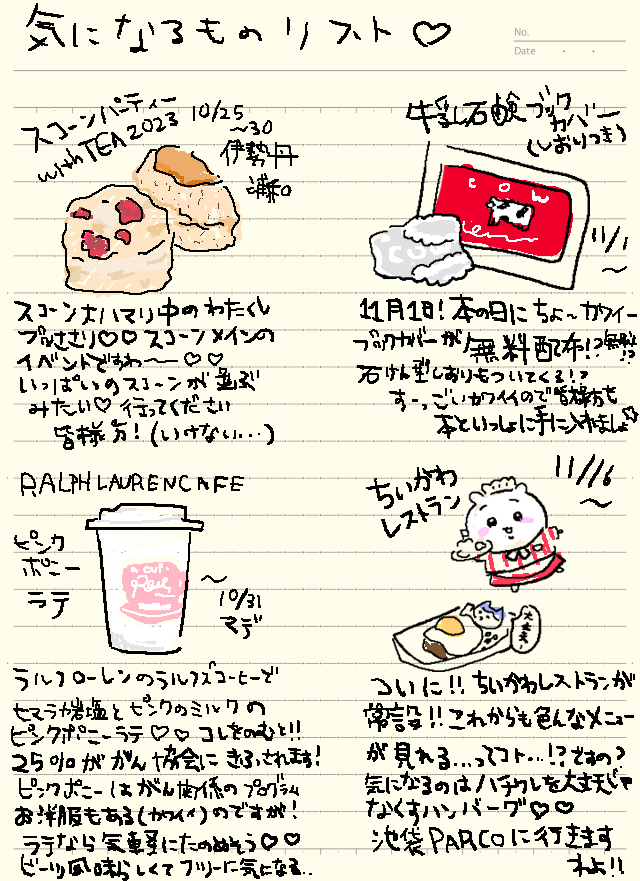 気になるものリスト♡
No.
Date
スコーンパーティー
with TEA 2023
10/25
〜30
伊勢丹
浦和
スコーン大ハマり中のわたくし
ブッささり♡♡スコーンメインの
イベントですわ〜♡♡
いっぱいのスコーンが並ぶ
みたい♡行ってください
皆様方!(いけない…)
牛乳石鹸ブック
カバー
(しおりつき)
COW
11/1
〜
11月1日!本の日にちょ〜カワイー
ブックカバーが無料配布!?無料!?
石けん型しおりもついてくる!?
すーっごいカワイイので皆様方も
本といっしょに手に入れましょ
RALPH LAUREN CAFE
ピンク
ポニー
ラテ
〜
10/31
マデ
ラルフローレンのラルフズコーヒーで
ヒマラヤ岩塩とピンクのミルクの
ピンクポニーラテ♡♡コレをのむと!!
25%ががん協会にきふされます!
ピンクポニーはがん関係のプログラム
お洋服もある(カワイイ)のですが!
ラテなら気軽にたのめそう♡♡
ビーツ風味らしくてフツーに気になる..
ちいかわ
レストラン
11/16
〜
大丈夫!
ついに!!ちいかわレストランが
常設!!これからも色んなメニュー
が見れる…ってコト…!?ですの?
気になるのはハチワレを大丈夫じゃ
なくすハンバーグ♡♡
池袋PARCOに行きます
わよ!!